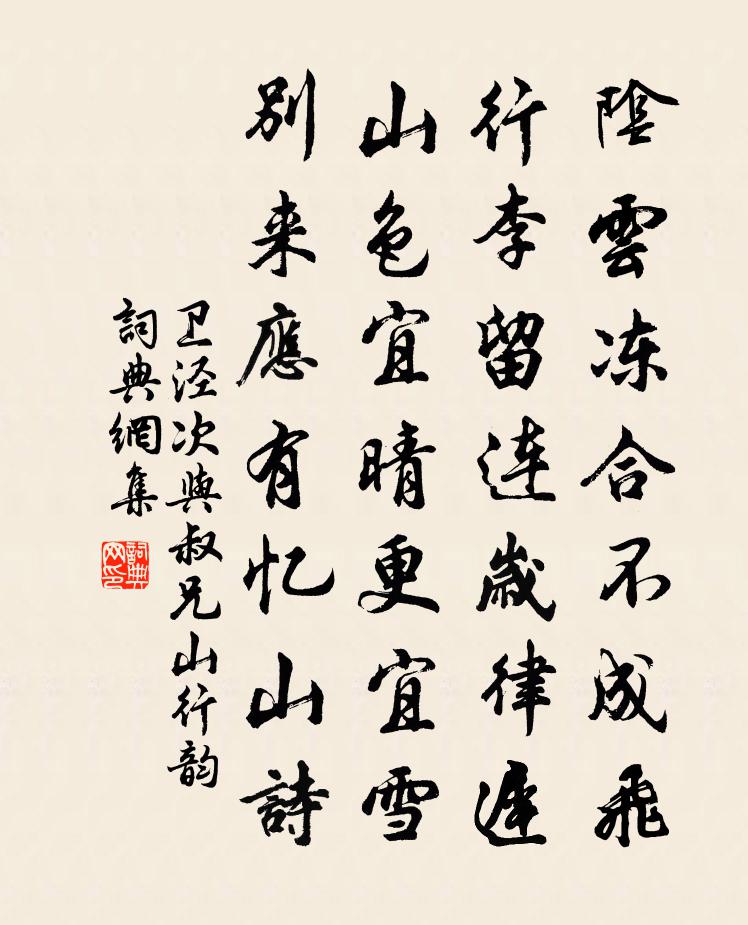 陰雲冻合不成飛
行李留连歲律遲
山色宜晴更宜雪
别来應有忆山詩
卫泾次與叔兄山行韵
詞典網集
詞典
网印